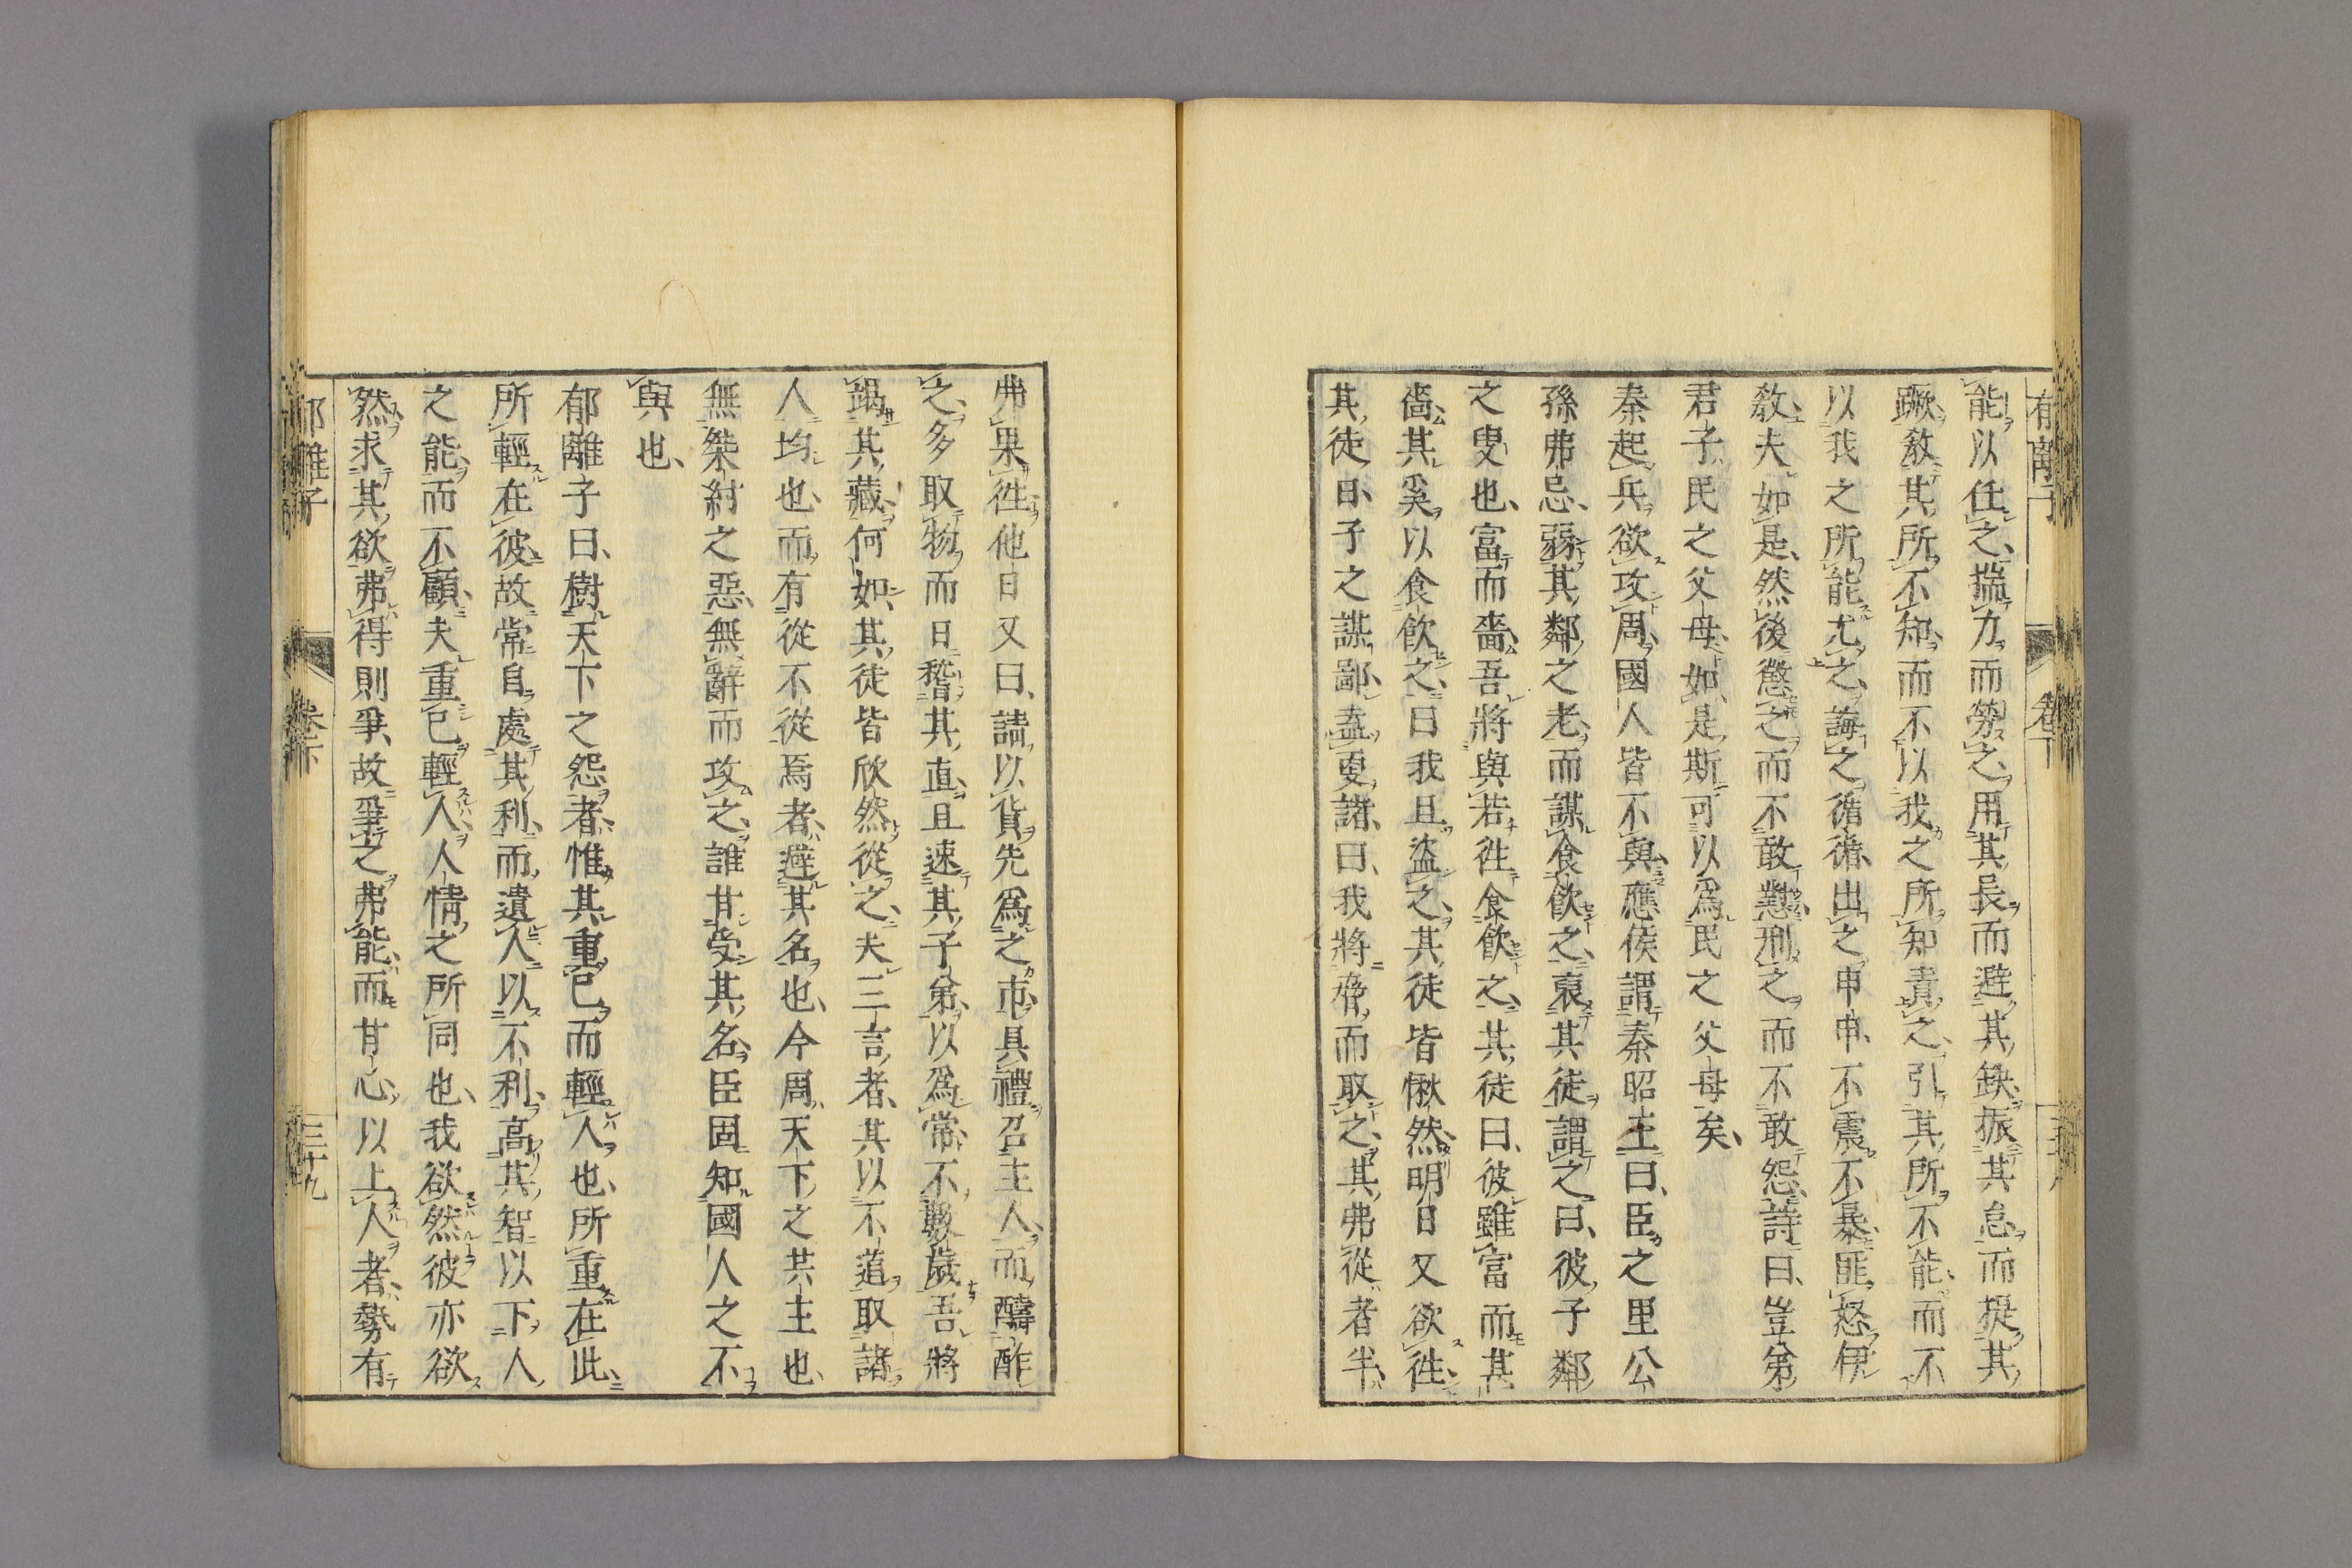 能以任之、揣力而勞之、用其長而避其缺、振其怠而提其
蹶、敎其所不知、而不以我之所知責之、引其所不能、而不
以我之所能尤之、誨之循循、出之申申、不震不暴、匪怒伊
敎、夫如是、然後懲之而不敢懟、刑之而不敢怨、詩曰、豈弟
君子、民之父母、如是、斯可以爲民之父母矣、
秦起兵欲攻周、國人皆不與、應侯謂秦昭王曰、臣之里公
孫弗忌、弱其鄰之老、而謀食飮之、裒其徒謂之曰、彼子鄰
之叟也、富而嗇、吾將與若往食飮之、其徒曰、彼雖富而甚
嗇、其奚以食飮之、曰我且盜之、其徒皆愀然、明日又欲往、
其徒曰、子之謀鄙、盍更諸、曰、我將脅而取之、其弗從者半、
弗果往、他日又曰、請以貨先爲之市、具禮召主人、而醻酢
之、多取物、而日稽其直、且速其子弟、以爲常、不數歲吾將
竭其藏、何如、其徒皆欣然從之、夫三言者、其以不道取諸
人均也、而有從不從焉者、避其名也、今周天下之共主也、
無桀紂之惡、無辭而攻之、誰甘受其名、臣固知國人之不
與也、
郁離子曰、樹天下之怨者、惟其重己而輕人也、所重在此、
所輕在彼、故常自處其利、而遺人以不利、高其智以下人
之能、而不顧、夫重己輕人、人情之所同也、我欲然、彼亦欲
然、求其欲弗得則爭、故爭之弗能、而甘心以上人者、勢有
郁離子
卷下
三十九